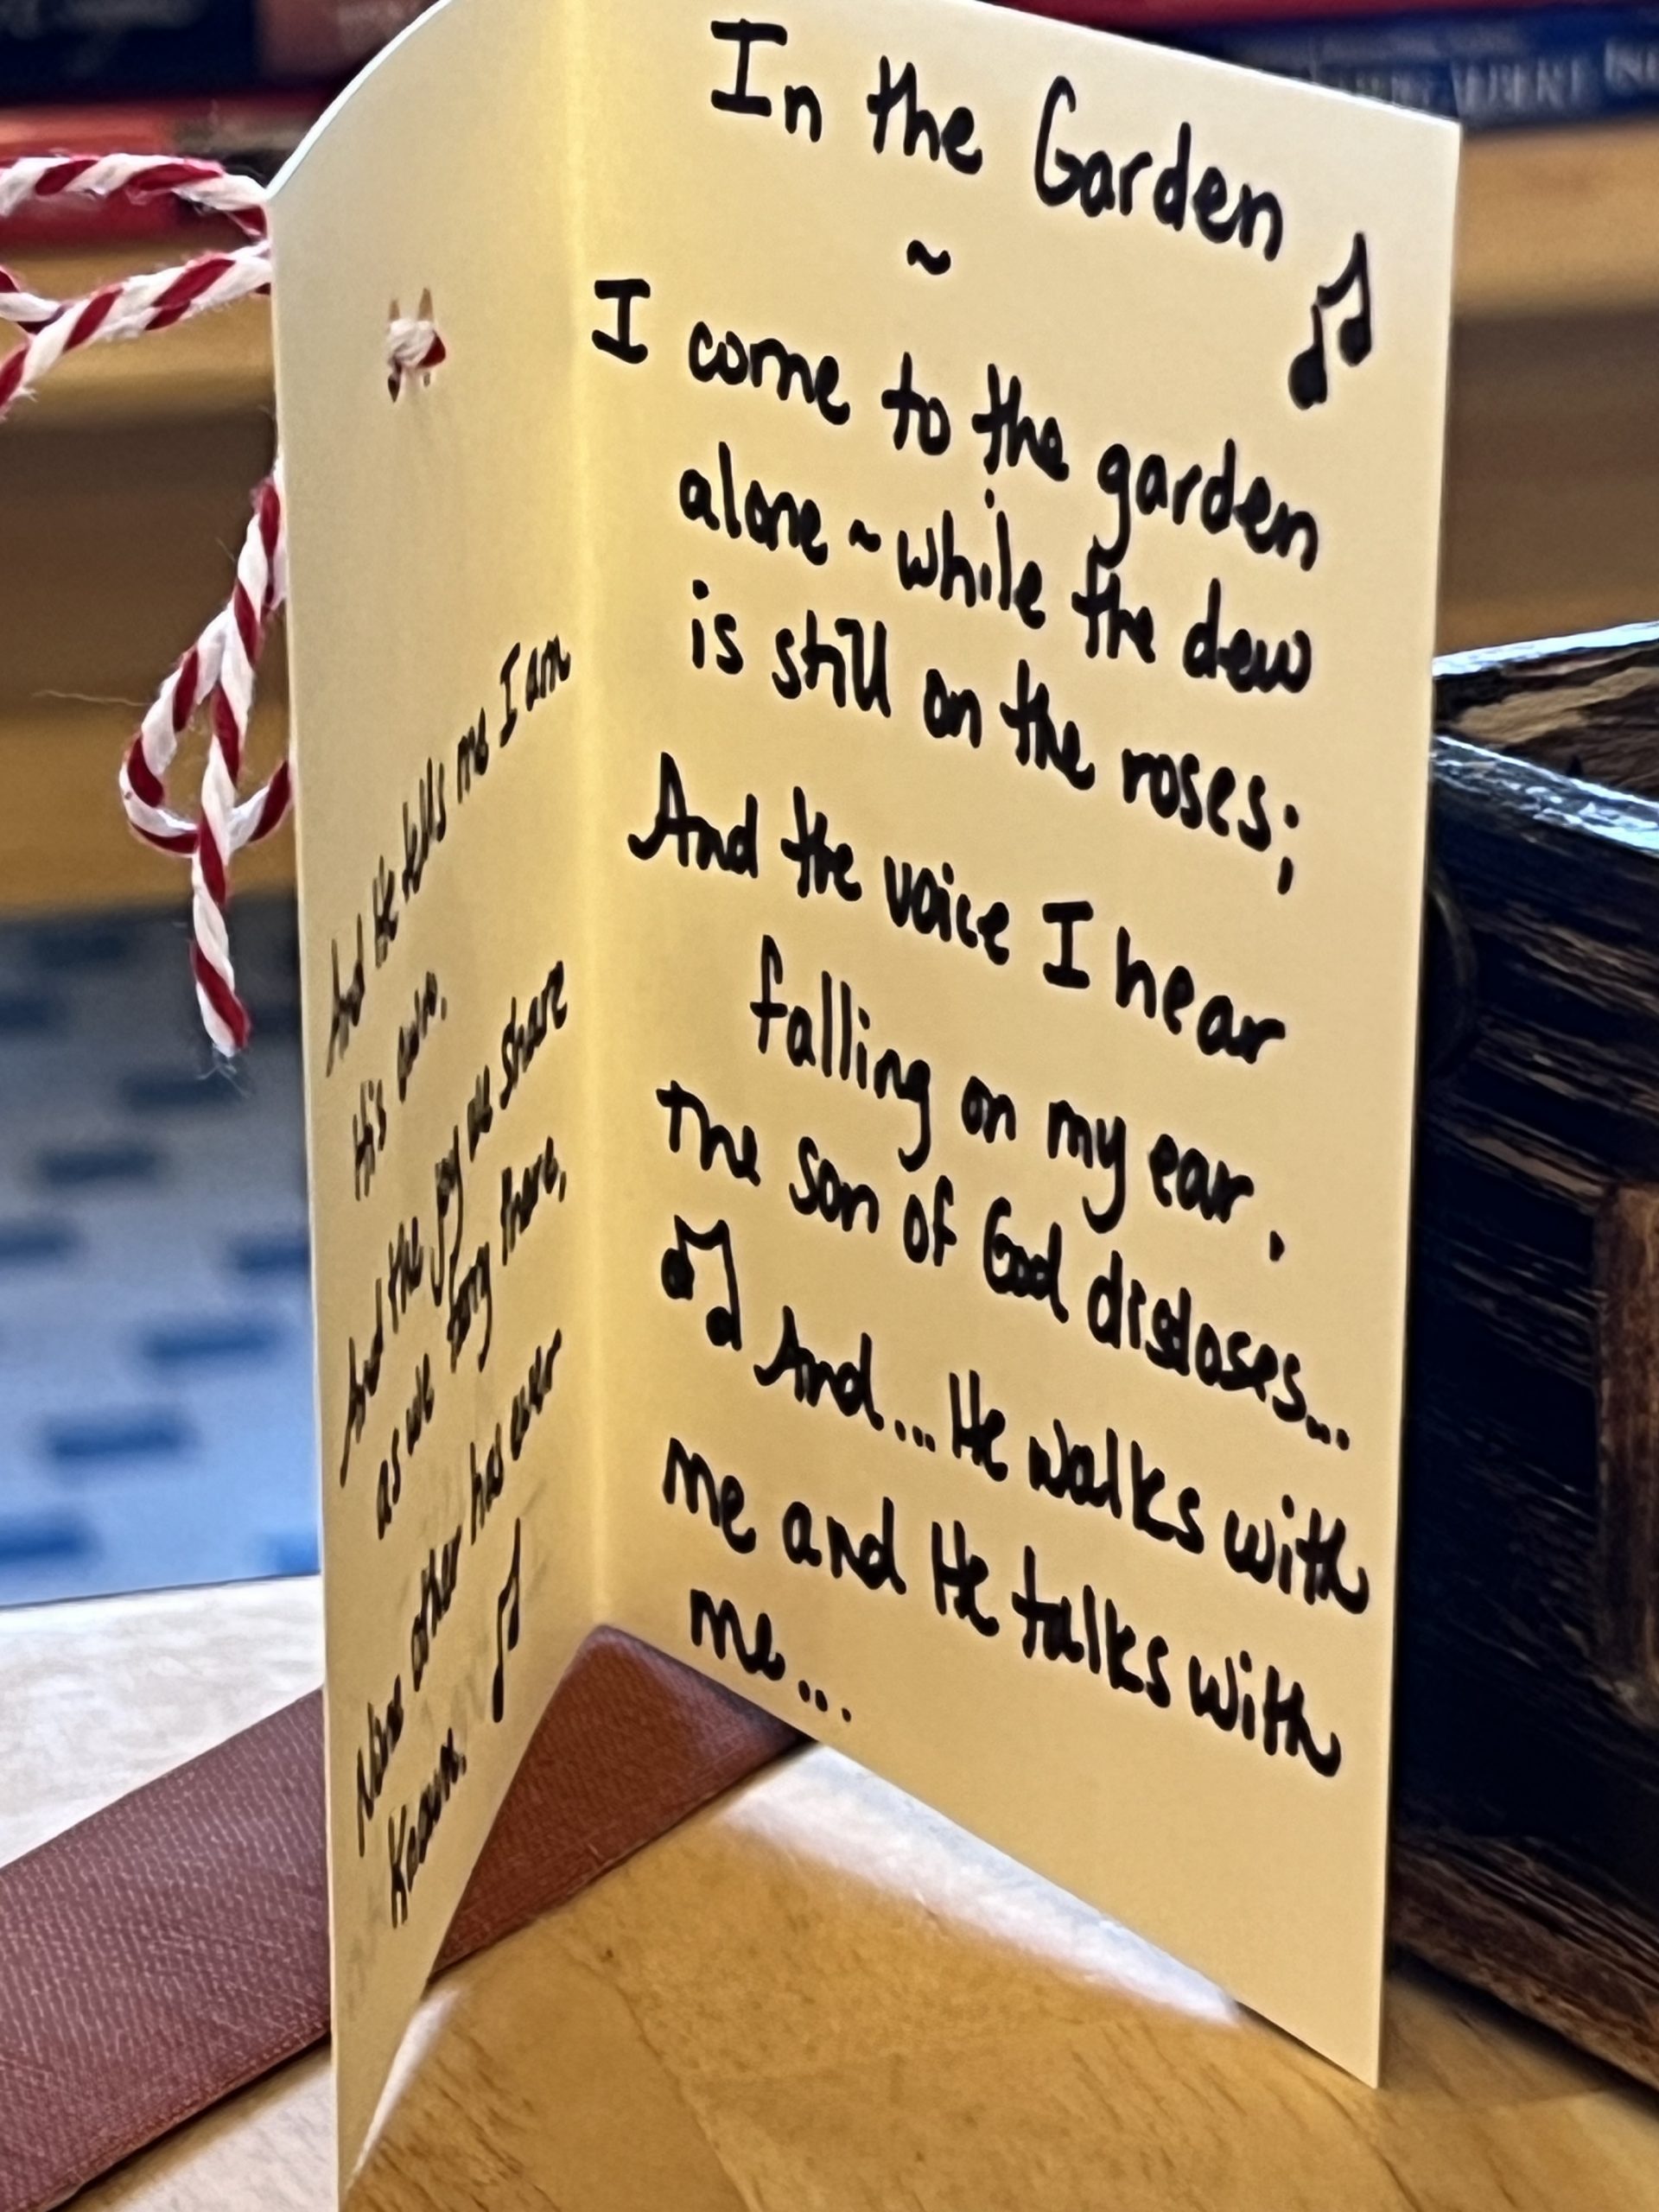 In the Garden
~
I come to the garden
alone ~ while the dew
is still on the roses;
And the voice I hear
falling on my ear.
The son of God discloses...
And... He walks with
me and He talks with
me...
And He tells me I am
His own.
And the joy we share
as we tarry there,
None other has ever
Known.